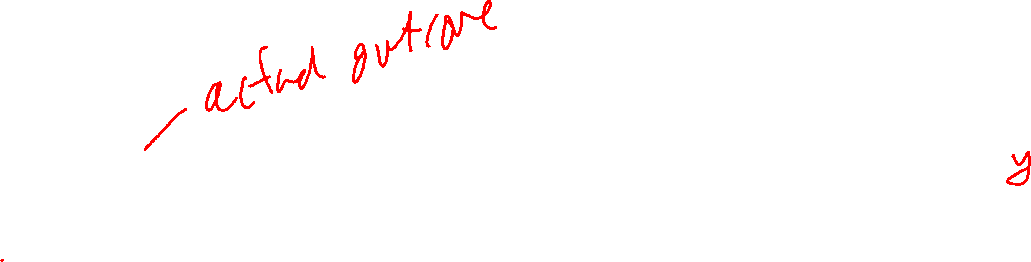 actual outcome
y